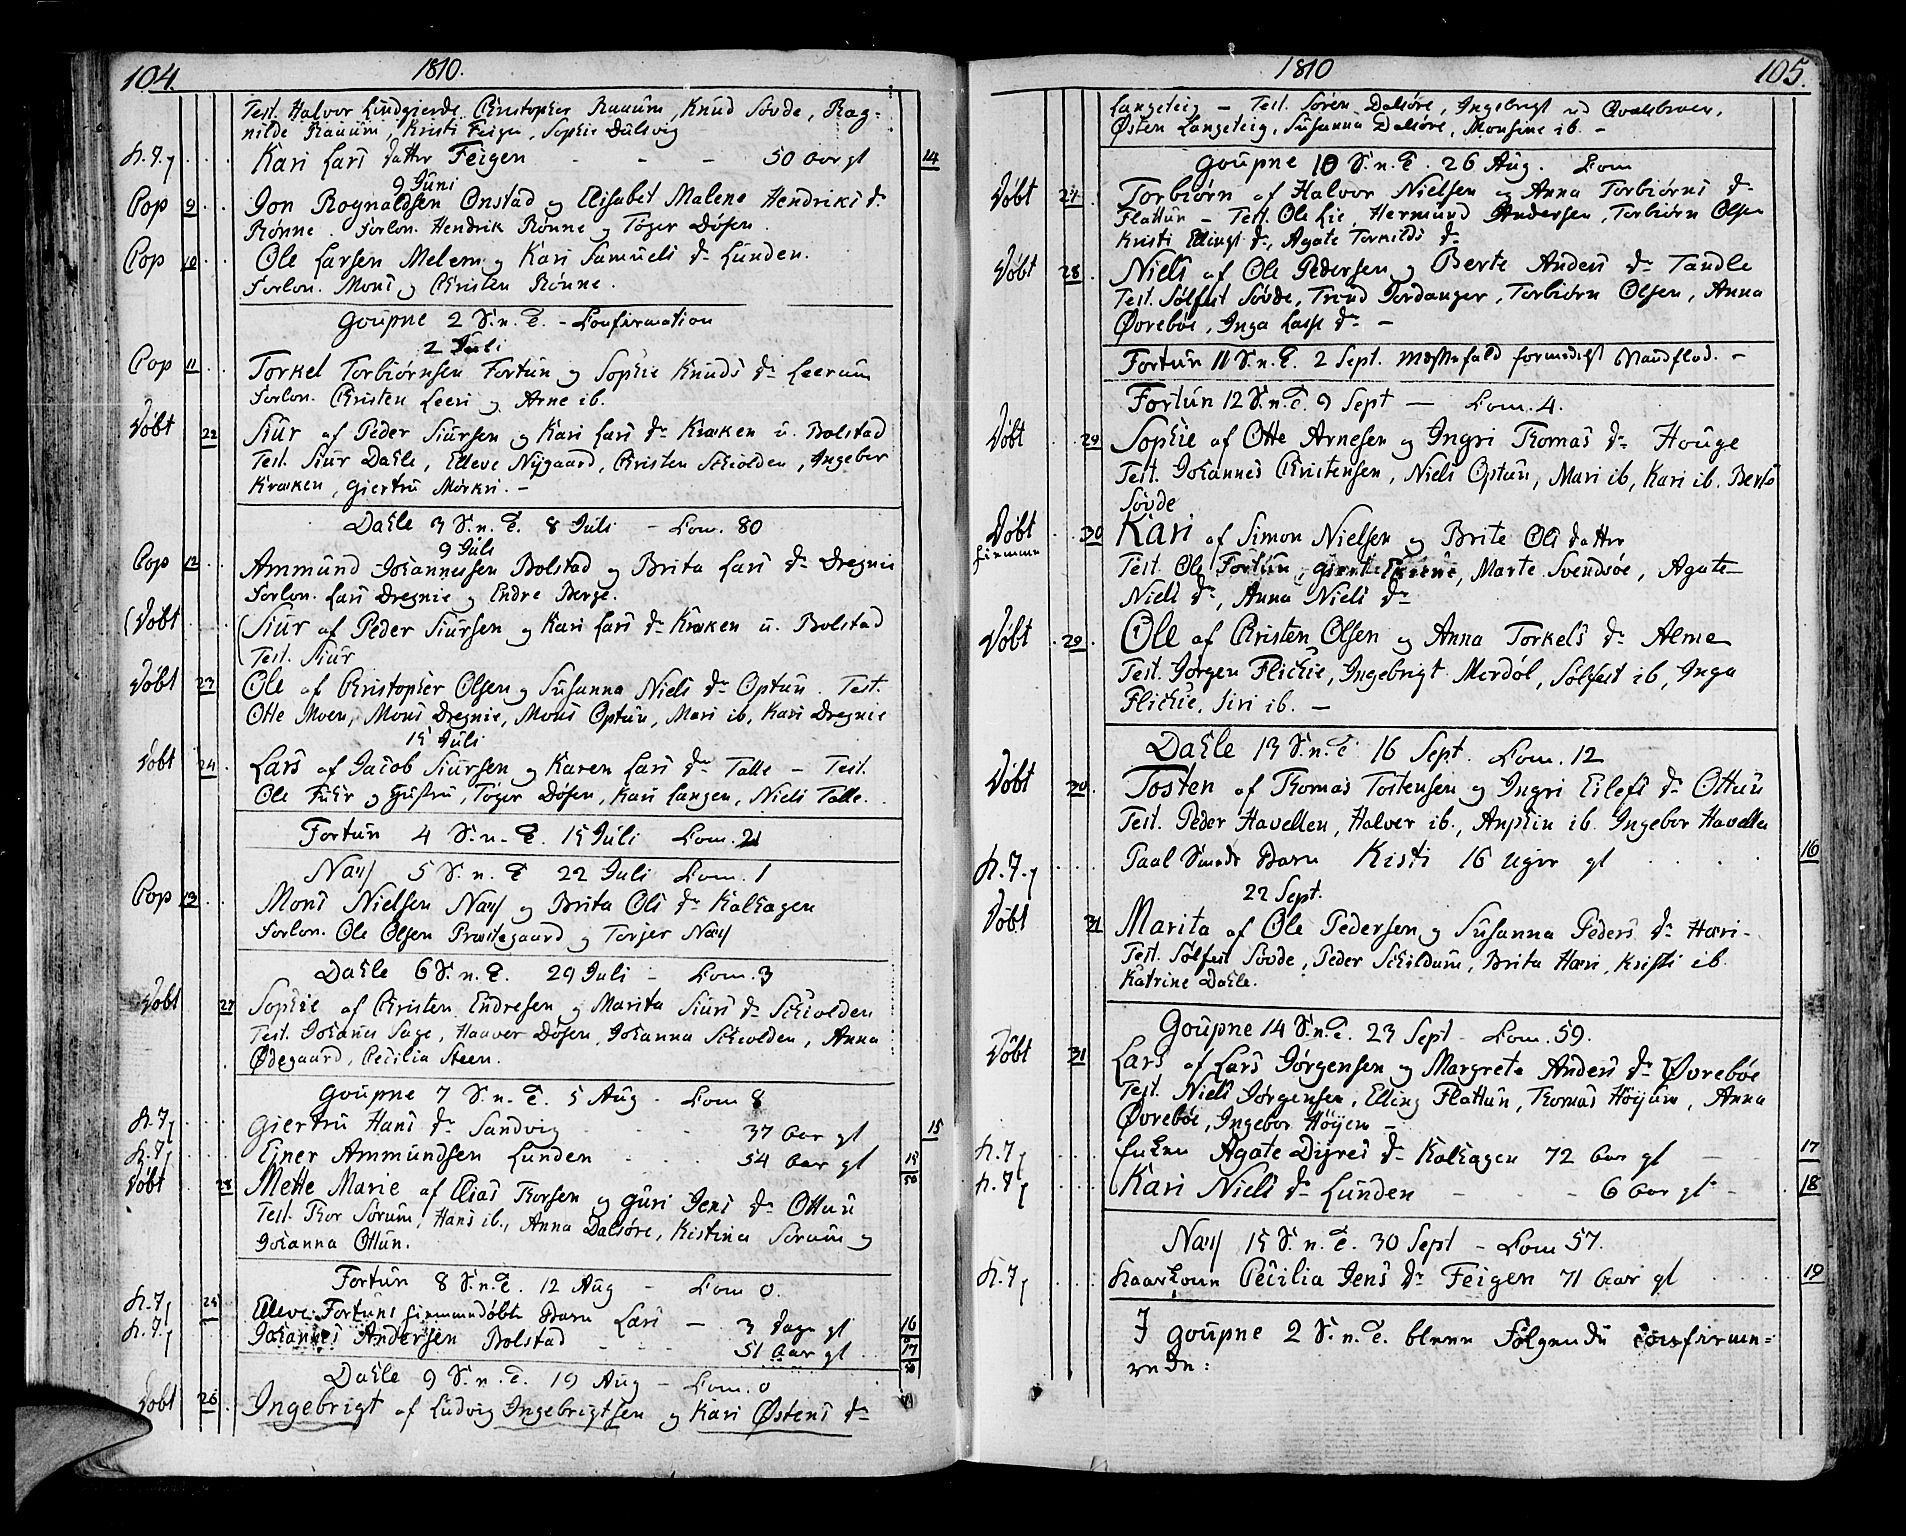 104.
1810.
Test. Halvor Lindgierde Christopher Knud Søvde, Rag-
nilde Kristi Feigen, Sophie
h. 7. Kari Lars datter Feigen - - - 50 Aar gl 14
9 Juni
Cop 9 Jon Rognaldsen Onstad og Elisabet Malene Hendriks dr
Rønne. Forlov. Hendrik Rønne og Tøger Døsen.
Cop 10 Ole Larsen Melem og Kari Samuels dr Lunden.
Forlov. Mons og Christen Rønne.
Goupne 2 S. n. T. - Confirmation
2 Juli
Cop 11 Torkel Torbiørnsen Fortun og Sophie Knuds dr Leerum
Forlov. Christen Leeri og Arne ib.
Døbt 22 Siur af Peder Siursen og Kari Lars dr Kræken u. Bolstad
Test. Siur Dahle, Elleve Nygaard, Christen Schiolden, Ingebor
Kræken, Giertru Mørkri. -
Dahle 3 S. n. T. 8 Juli - Com. 80
9 Juli
Cop 12 Ammund Johannesen Bolstad og Brita Lars dr Dregnie
Forlov. Lars Dregnie og Endre Berge.
(Døbt (Siur af Peder Siursen og Kari Lars dr Kræken u. Bolstad
Test. Siur
Døbt 23 Ole af Christopher Olsen og Susanna Niels dr Optun. Test.
Otte Moen, Mons Dregnie, Mons Optun, Mari ib, Kari Dregnie
15 Juli
Døbt 24 Lars af Jacob Siursen og Karen Lars dr Talle - Test.
Ole og Tøger Døsen, Kari Langen, Niels Talle.
Fortun 4 S. n. T 15 Juli Com. 21
Næss 5 S. n. T 22 Juli Com. 1
Cop 13 Mons Nielsen Næss og Brita Ols dr Kalhagen
Forlov. Ole Olsen Præstegaard og Torger Næss
Dahle 6 S. n. T. 29 Juli - Com. 3
Døbt 27 Sophie af Christen Endresen og Marita Siurs dr Schiolden
Test. Johannes Sage, Haaver Døsen, Johanna Schiolden, Anna
Ødegaard, Cecilia Steen.
Goupne 7 S. n. T. 5 Aug - Com 8
h. 7 Giertru Hans dr Sandvig 37 Aar gl 15
h. 7 Ejner Ammundsen Lunden 54 Aar gl 15
Døbt 28 Mette Marie af Elias Thorsen og Guri Jens dr Ottun 50
Test. Thor Sørum, Hans ib., Anna Dalsøre, Kistina Sørum og
Johanna Ottun.
Fortun 8 S. n. T. 12 Aug - Com 0.
h. 7 24 Elleve Fortuns hiemmedøbte Barn Lars - 3 dage gl 16
h. 7 Johannes Andersen Bolstad - - - 51 Aar gl 17
Dahle 9 S. n. T. 19 Aug - Com. 0
Døbt 26 Ingebrigt af Ludvig Ingebrigtsen og Kari Østens dr
1810
105.
Langeteig - Test. Søren Dalsøre, Ingebrigt
Østen Langeteig, Susanna Dalsøre, Monsine ib. -
Goupne 10 S. n. T. 26 Aug. Com
Døbt 27 Torbiørn af Halvor Nielsen og Anna Torbiørns dr
Flattun - Test. Ole Lie, Hermund Andersen, Torbiørn Olsen
Kristi Ellings dr, Agate Torkilds dr
Døbt 28 Niels af Ole Pedersen og Berte Anders dr Tandle
Test. Sølfest Søvde, Trond Tordanger, Torbiørn Olsen, Anna
Øvrebøe, Inga Lasse dr -
Fortun 11 S. n. T. 2 Sept. Messefald formedelst Vandflod. -
Fortun 12 S. n. T. 9 Sept - Com. 4.
Døbt 29 Sophie af Otte Arnesen og Ingri Thomas dr Houge
Test. Johannes Christensen, Niels Optun, Mari ib, Kari ib. Berte
Søvde
Døbt 30 Kari af Simon Nielsen og Brite Ols datter
hiemme Test. Ole Fortun, Marte Svendsøe, Agate
Niels dr, Anna Niels dr
Døbt 29 Ole af Christen Olsen og Anna Torkels dr Alme
Test. Jørgen Flichie, Ingebrigt Mordøl, Sølfest ib, Inga
Flichie, Siri ib. -
Dahle 13 S. n. T. 16 Sept. Com. 12
Døbt 30 Tosten af Thomas Tostensen og Ingri Eilefs dr Ottun
Test. Peder Havellen, Halver ib., Anphin ib. Ingebor Havellen
h. 7. Paal Smeds Barn Kisti 16 Uger gl 16
22 Sept.
Døbt 31 Marita af Ole Pedersen og Susanna Peders dr Hæri-
Test. Sølfest Søvde, Peder Schildum, Brita Hæri, Kristi ib.
Katrine Dahle.
Goupne 14 S. n. T. 23 Sept - Com. 59.
Døbt 31 Lars af Lars Jørgensen og Margrete Anders dr Øvrebøe
Test. Niels Jørgensen, Elling Flattun, Thomas Høyum, Anna
Øvrebøe, Ingebor Høyem -
h. 7 Enken Agate Dyres dr Kalhagen 72 Aar gl - 17
h. 7 Kari Niels dr Lunden - - - 6 Aar gl - 18
Næss 15 S. n. T. 30 Sept - Com 57.
h. 7 Cecilia Jens dr Feigen 71 Aar gl 19
I Goupne 2 S. n. T. bleve Følgende confirme-
rede: